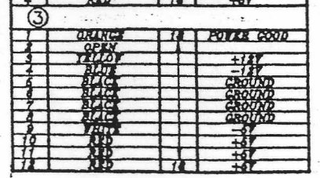 4 RED 18 +5V
3
1 ORANGE 18 POWER GOOD
2 OPEN
3 YELLOW +12V
4 BLUE -12V
5 BLACK GROUND
6 BLACK GROUND
7 BLACK GROUND
8 BLACK GROUND
9 WHITE -5V
10 RED +5V
11 RED +5V
12 RED 18 +5V